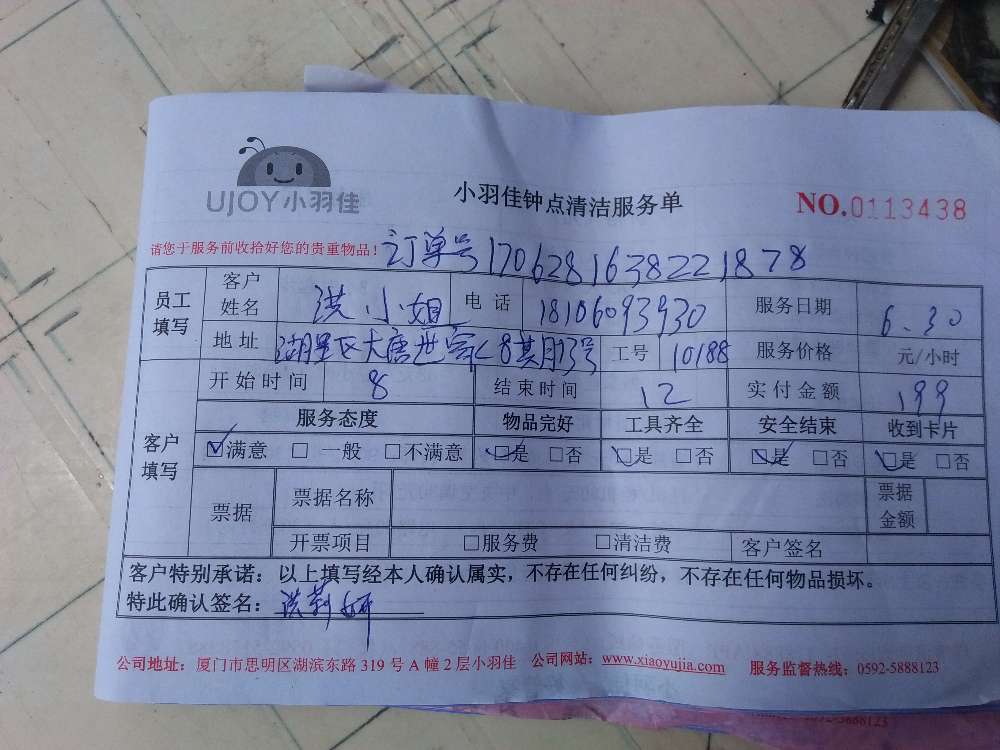 UJOY小羽佳
小羽佳钟点清洁服务单
NO.0113438
请您于服务前收拾好您的贵重物品!
订单号170628163822 1878
员工填写
客户姓名 洪小姐 电话 18106093930 服务日期 6.30
地址 湖里区大唐世家 8 号 工号 10188 服务价格 元/小时
客户填写
开始时间 8 结束时间 12 实付金额 199
服务态度 物品完好 工具齐全 安全结束 收到卡片
☑满意 □一般 □不满意 ☑是 □否 ☑是 □否 ☑是 □否 ☑是 □否
票据 票据名称 票据金额
开票项目 □服务费 □清洁费 客户签名
客户特别承诺：以上填写经本人确认属实，不存在任何纠纷，不存在任何物品损坏。
特此确认签名：洪莉妍
公司地址：厦门市思明区湖滨东路 319 号 A 幢 2 层小羽佳 公司网站：www.xiaoyujia.com 服务监督热线：0592-5888123
0592-5888123